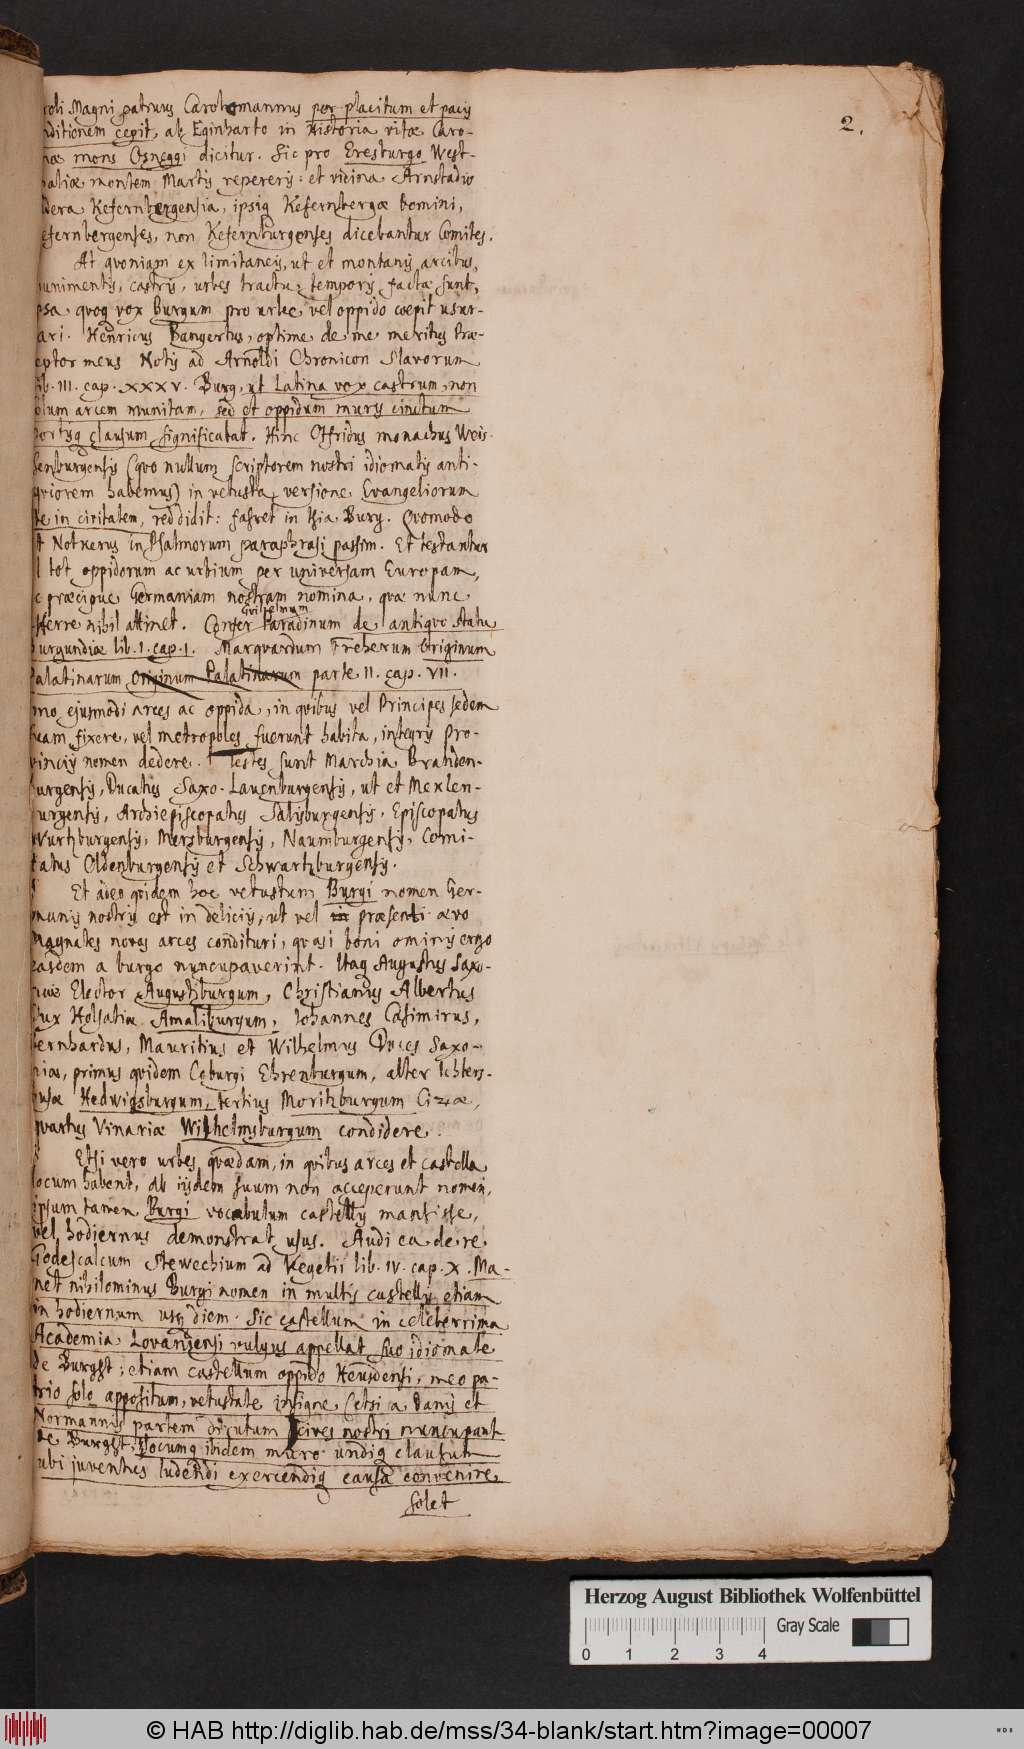 2.
roli Magni patruus Carolomannus per placitum et pacis
nditionem cepit, ab Eginharto in historia vitæ Caro-
næ mons Osneggi dicitur. Sic pro Eresburgo West-
haliæ montem Martis repereris: et vicina Arnstadio
dera Kefernbergensia, ipsiq Kefernbergæ Domini,
efernbergenses, non Kefernburgenses dicebantur Comites.
At qvoniam ex limitaneis, ut et montanis arcibus,
unimentis, castris, urbes tractu temporis factæ sunt,
psa qvoq vox Burgum pro urbe vel oppido coepit usur-
ari. Henricus Bangertus, optime de me meritus Præ-
eptor meus Notis ad Arnoldi Chronicon Slavorum
ib. III. cap. XXXV. Burg, ut Latina vox castrum, non
olum arcem munitam, sed et oppidum muris cinctum
portisq clausum significabat. Hinc Otfridus monachus Weis-
senburgensis (qvo nullum scriptorem nostri idiomatis anti-
qviorem habemus) in vetusta versione Evangeliorum
te in civitatem, reddidit: faret in thia Burg. Qvomodo
t Notkerus in Psalmorum paraphrasi passim. Et testantur
l tot oppidorum ac urbium per universam Europam,
c præcipue Germaniam nostram nomina, qvæ nunc
fferre nihil attinet. Confer Guilhelmum Paradinum de antiqvo statu
Burgundiæ lib. 1. cap. 1. Marqvardum Freherum Originum
Palatinarum Originum Palatinarum parte II. cap. VII.
mo ejusmodi arces ac oppida, in qvibus vel Principes sedem
suam fixere, vel metropoles fuerunt habita, integris Pro-
vinciis nomen dedere. Testes sunt Marchia Branden-
burgensis, Ducatus Saxo-Lauenburgensis, ut et Meklen-
burgensis, Archiepiscopatus Salisburgensis, Episcopatus
Wurtzburgensis, Mersburgensis, Naumburgensis, Comi-
tatus Oldenburgensis et Schwartzburgensis.
Et adeo qvidem hoc vetustum Burgi nomen Ger-
manis nostris est in deliciis, ut vel in præsenti ævo
Magnates novas arces condituri, qvasi boni ominis ergo
easdem a burgo nuncupaverint. Itaq Augustus Saxo-
niæ Elector Augustiburgum, Christianus Albertus
Dux Holsatiæ Amaliburgum, Iohannes Casimirus,
Bernhardus, Mauritius et Wilhelmus Duces Saxo-
niæ, primus qvidem Coburgi Ehrenburgum, alter Ichters-
husæ Hedwigsburgum, tertius Moritzburgum Cizæ,
qvartus Vinariæ Wilhelmsburgum condidere.
Etsi vero urbes qvædam, in qvibus arces et castella
locum habent, ab iisdem suum non acceperunt nomen,
ipsum tamen Burgi vocabulum castellis mansisse,
vel hodiernus demonstrat usus. Audi ea de re
Godescalcum Stewechium ad Vegetii lib. IV. cap. X. Ma-
net nihilominus Burgi nomen in multis castellis etiam
in hodiernum usq diem. Sic castellum in celeberrima
Academia Lovaniensi vulgus appellat suo idiomate
de Burght; etiam castellum oppido Heusdensi, meo pa-
trio solo appositum, vetustate insigne (etsi a Danis et
Normannis partem dirutum) cives nostri nuncupant
de Burght. Locumq ibidem muro undiq clausum
ubi juventus ludendi exercendiq causa convenire
solet
Herzog August Bibliothek Wolfenbüttel
Gray Scale
0 1 2 3 4
© HAB http://diglib.hab.de/mss/34-blank/start.htm?image=00007